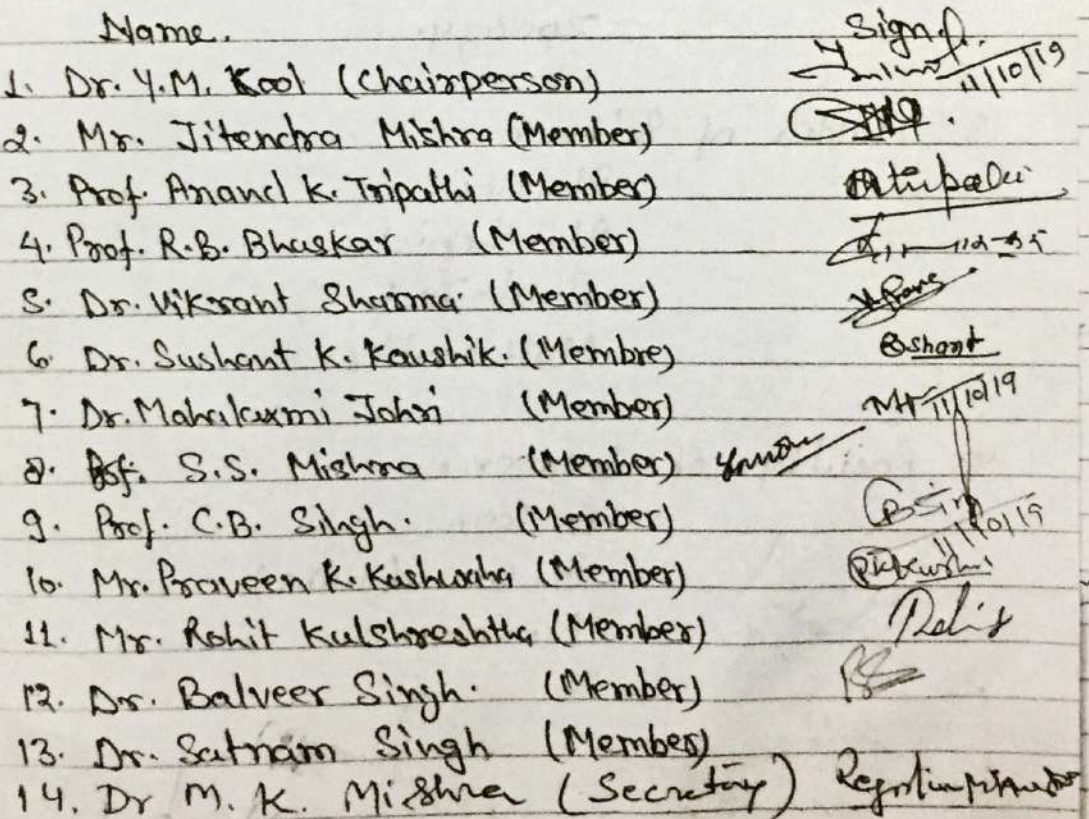 Name. Sign.
1. Dr. Y.M. Kool (Chairperson) 11/10/19
2. Mr. Jitendra Mishra (Member)
3. Prof. Anand K. Tripathi (Member)
4. Prof. R.B. Bhaskar (Member)
5. Dr. Vikrant Sharma (Member)
6. Dr. Sushant K. Kaushik. (Membre) shant
7. Dr. Mahalaxmi Johri (Member) 11/10/19
8. Prof. S.S. Mishra (Member)
9. Prof. C.B. Singh. (Member) CBSin
10. Mr. Praveen K. Kushwaha (Member) PKKush 11/10/19
11. Mr. Rohit Kulshreshtha (Member) Rohit
12. Dr. Balveer Singh. (Member) BS
13. Dr. Satnam Singh (Member)
14. Dr M. K. Mishra (Secretary)